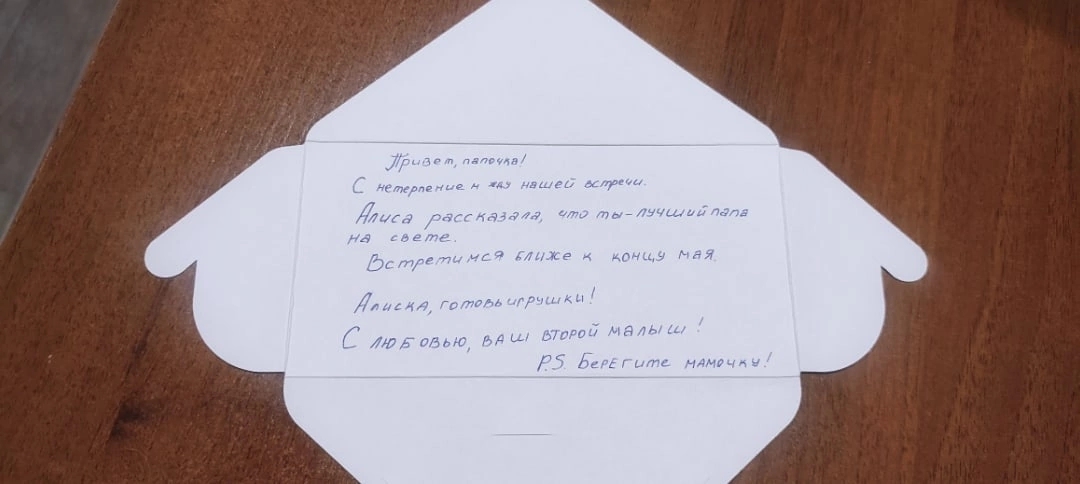 Привет, папочка!
С нетерпение м жду нашей встречи.
Алиса рассказала, что ты-лучший папа
на свете.
Встретимся ближе к концу мая.
Алиска, готовь игрушки!
С любовью, ваш второй малыш!
P.S. Берегите мамочку!